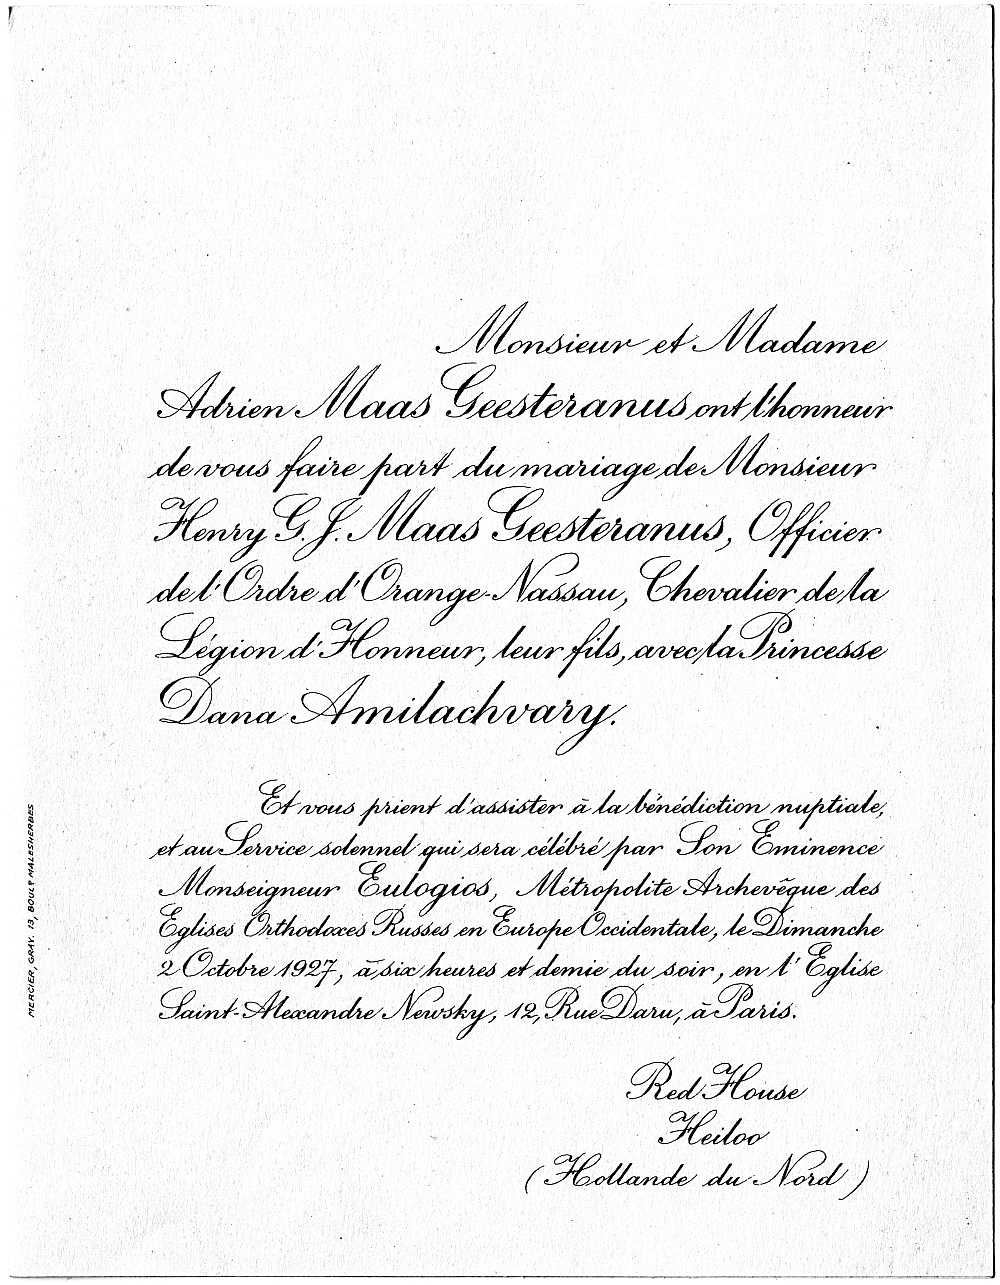 Monsieur et Madame
Adrien Maas Geesteranus ont l'honneur
de vous faire part du mariage de Monsieur
Henry G. J. Maas Geesteranus, Officier
de l'Ordre d'Orange-Nassau, Chevalier de la
Légion d'Honneur, leur fils, avec la Princesse
Dana Amilachvary.
Et vous prient d'assister à la bénédiction nuptiale,
et au Service solennel qui sera célébré par Son Eminence
Monseigneur Eulogios, Métropolite Archevêque des
Eglises Orthodoxes Russes en Europe Occidentale, le Dimanche
2 Octobre 1927, à six heures et demie du soir, en l'Eglise
Saint-Alexandre Newsky, 12, Rue Daru, à Paris.
Red House
Heiloo
(Hollande du Nord)
MERCIER, GRAV. 13, BOULD MALESHERBES